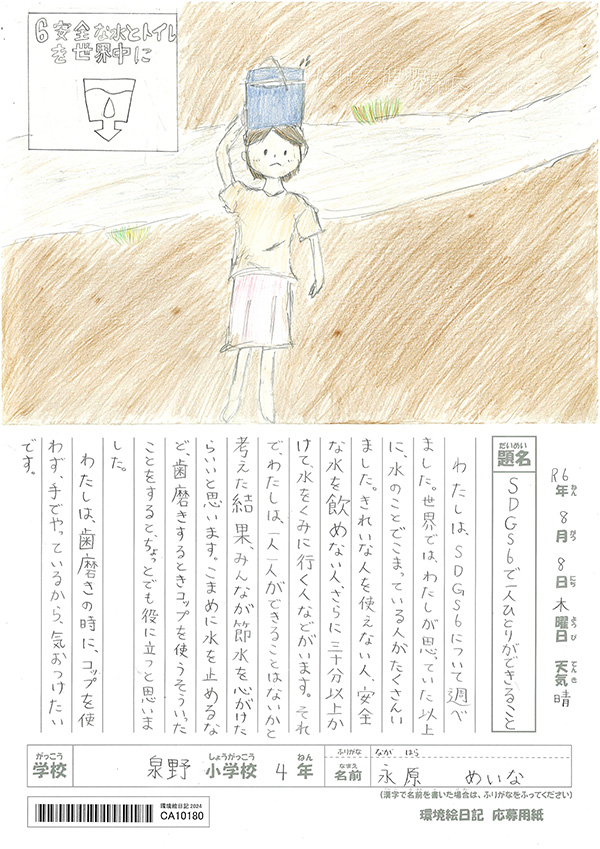 6 安全な水とトイレ
を世界中に
R6年 8月 8日 木曜日 天気 晴
ねん がつ にち ようび てんき
だいめい
題名
SDGS6で一人ひとりができること
わたしは、SDGS6について調べ
ました。世界では、わたしが思っていた以上
に、水のことでこまっている人がたくさんい
ました。きれいな人を使えない人、安全
な水を飲めない人、さらに三十分以上か
けて、水をくみに行く人などがいます。それ
で、わたしは、一人一人ができることはないかと
考えた結果、みんなが節水を心がけた
らいいと思います。こまめに水を止めるな
ど、歯磨きするときコップを使うそういった
ことをすると、ちょっとでも役に立つと思いま
した。
わたしは、歯磨きの時に、コップを使
わず、手でやっているから、気おつけたい
です。
がっこう しょうがっこう ねん
学校 泉野 小学校 4年
ふりがな なが はら
なまえ
名前 永原 めいな
(漢字で名前を書いた場合は、ふりがなをふってください)
環境絵日記2024
CA10180
環境絵日記 応募用紙